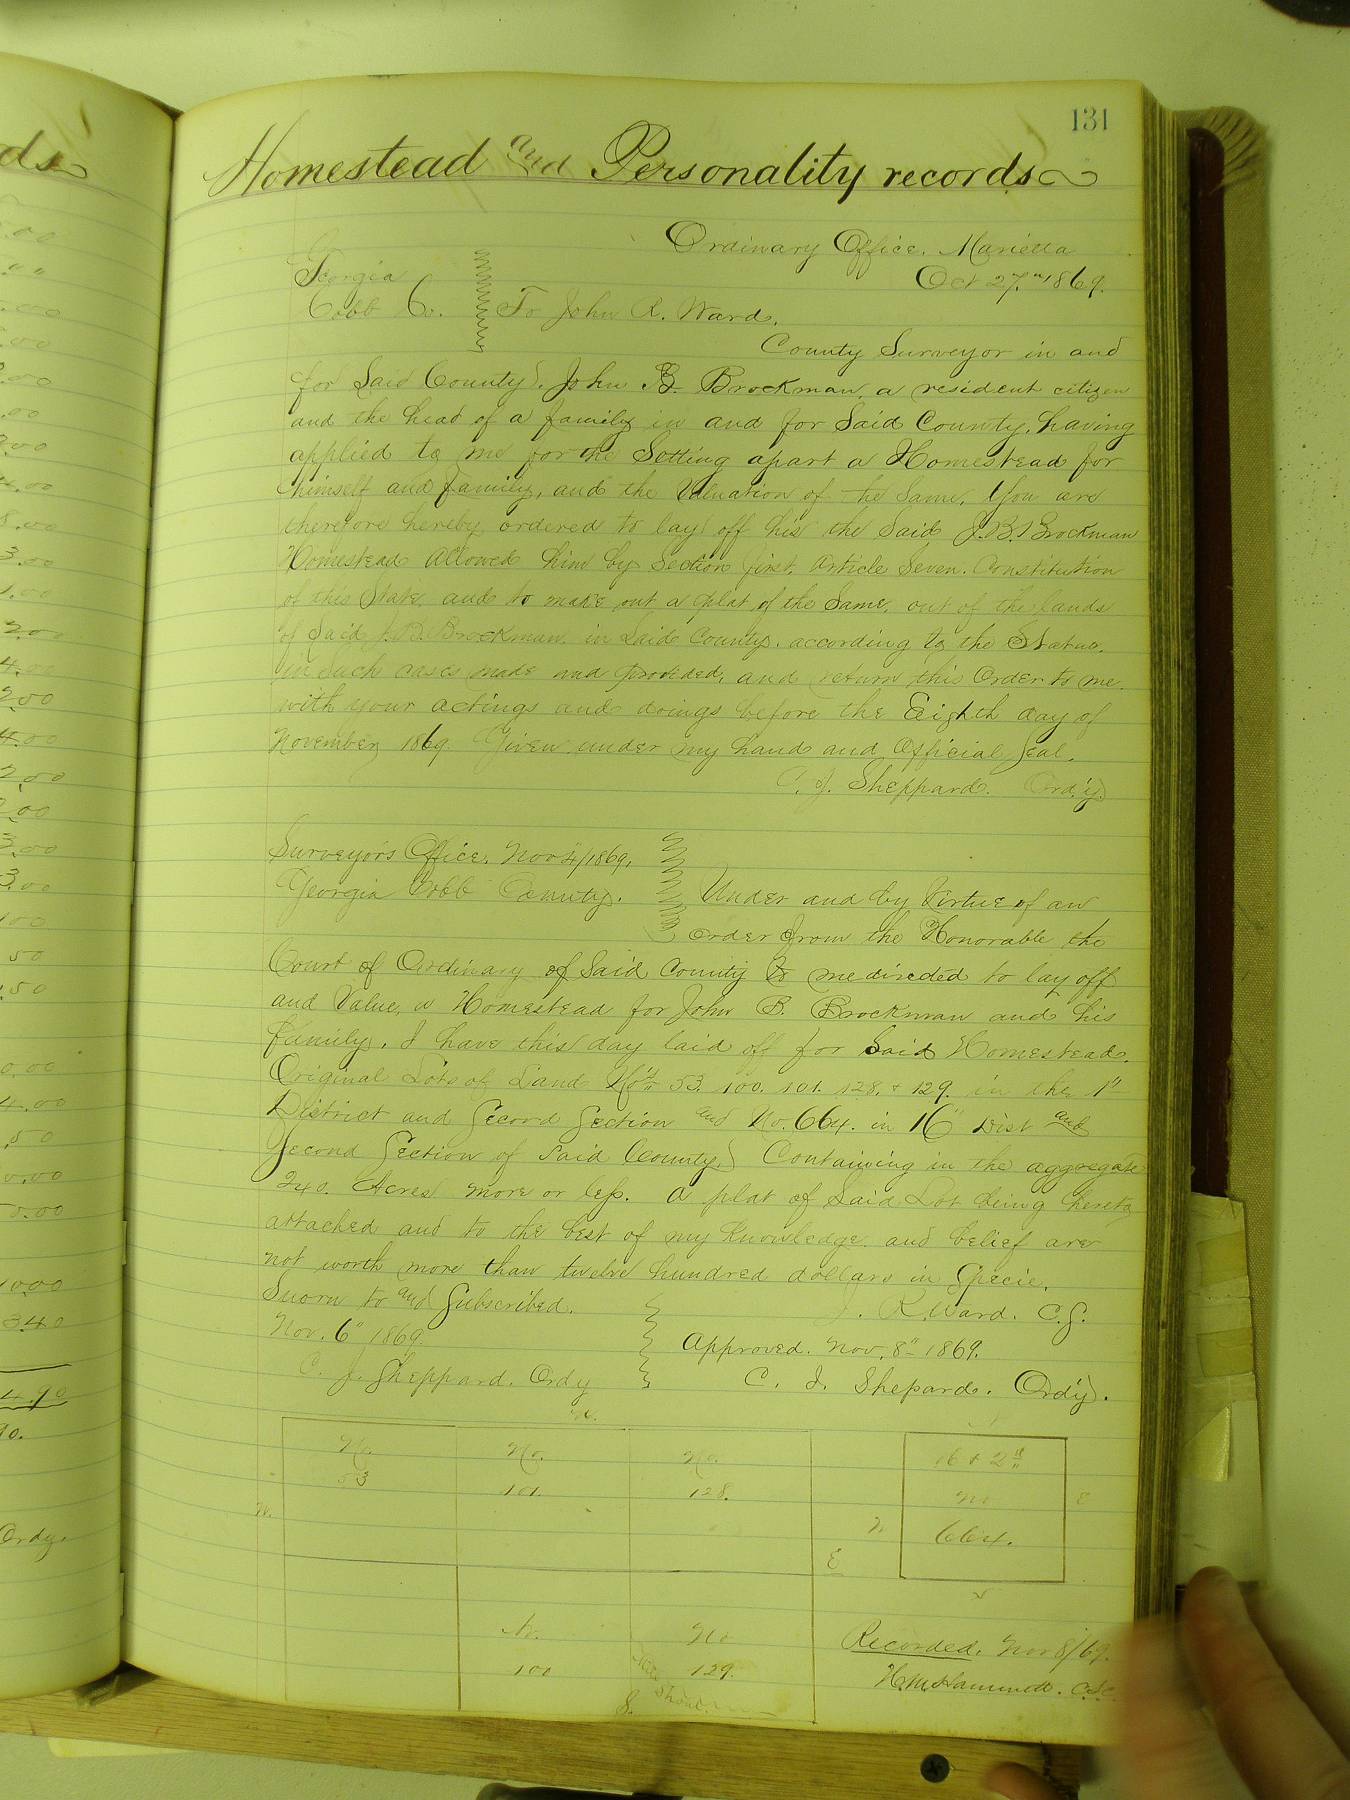 131
Homestead and Personality records
Ordinary Office. Marietta
Georgia
Oct 27." 1869.
Cobb Co. To John R. Ward.
County Surveyor in and
for Said County. John B. Brockman, a resident citizen
and the head of a family in and for Said County, having
applied to me for the Setting apart a Homestead for
himself and family, and the Valuation of the Same. You are
therefore hereby ordered to lay off his the Said J. B. Brockman
Homestead allowed him by Section first. Article Seven. Constitution
of this State, and to make out a plat of the Same, out of the lands
of Said J. B. Brockman, in Said County. according to the Status.
in such cases made and provided, and return this Order to me
with your actings and doings before the Eighth day of
November 1869. Given under my hand and Official Seal.
C. J. Sheppard. Ord'y
Surveyors Office. Nov 4/1869.
Georgia Cobb County. Under and by Virtue of an
order from the Honorable the
Court of Ordinary of Said County to me directed to lay off
and Value, a Homestead for John B. Brockman and his
family. I have this day laid off for Said Homestead.
Original Lots of Land Nos 53. 100. 101. 128. + 129. in the 1"
District and Second Section and No. 664. in 16" Dist and
Second Section of Said County. Containing in the aggregate
240. Acres more or less. A plat of Said Lot being hereto
attached and to the best of my knowledge and belief are
not worth more than twelve hundred dollars in Specie.
Sworn to and Subscribed. J. R. Ward. C.S.
Nov. 6" 1869. Approved. Nov. 8" 1869.
C. J. Sheppard. Ordy C. J. Shepard. Ord'y.
N.
No. No. No. 16 + 2"
53 101. 128. No
W. E
664.
E
No. No Recorded. Nov 8/69.
100 129. H. M. Hammett. C.S.C.
S.
ds
Ordy.